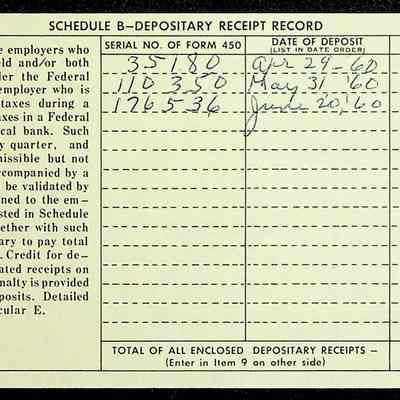 SCHEDULE B—DEPOSITARY RECEIPT RECORD
SERIAL NO. OF FORM 450
DATE OF DEPOSIT
(LIST IN DATE ORDER)
35180 Apr 29-60
110350 May 31 '60
176536 June 20,'60
e employers who
ld and/or both
der the Federal
employer who is
taxes during a
axes in a Federal
cal bank. Such
y quarter, and
missible but not
ccompanied by a
be validated by
ned to the em-
sted in Schedule
ether with such
ary to pay total
. Credit for de-
ated receipts on
nalty is provided
posits. Detailed
cular E.
TOTAL OF ALL ENCLOSED DEPOSITARY RECEIPTS —
(Enter in Item 9 on other side)